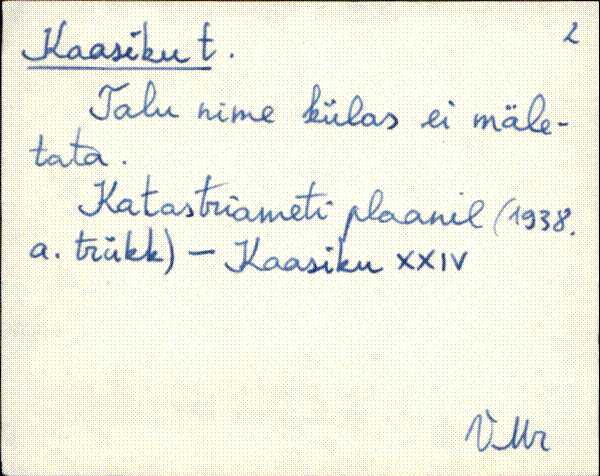 2
Kaasiku t.
Talu nime külas ei mäle-
tata.
Katastriameti plaanil (1938.
a. trükk) – Kaasiku XXIV
VMr